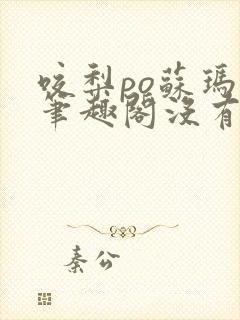 咬梨po蘇瑪
筆趣閣沒有
秦公